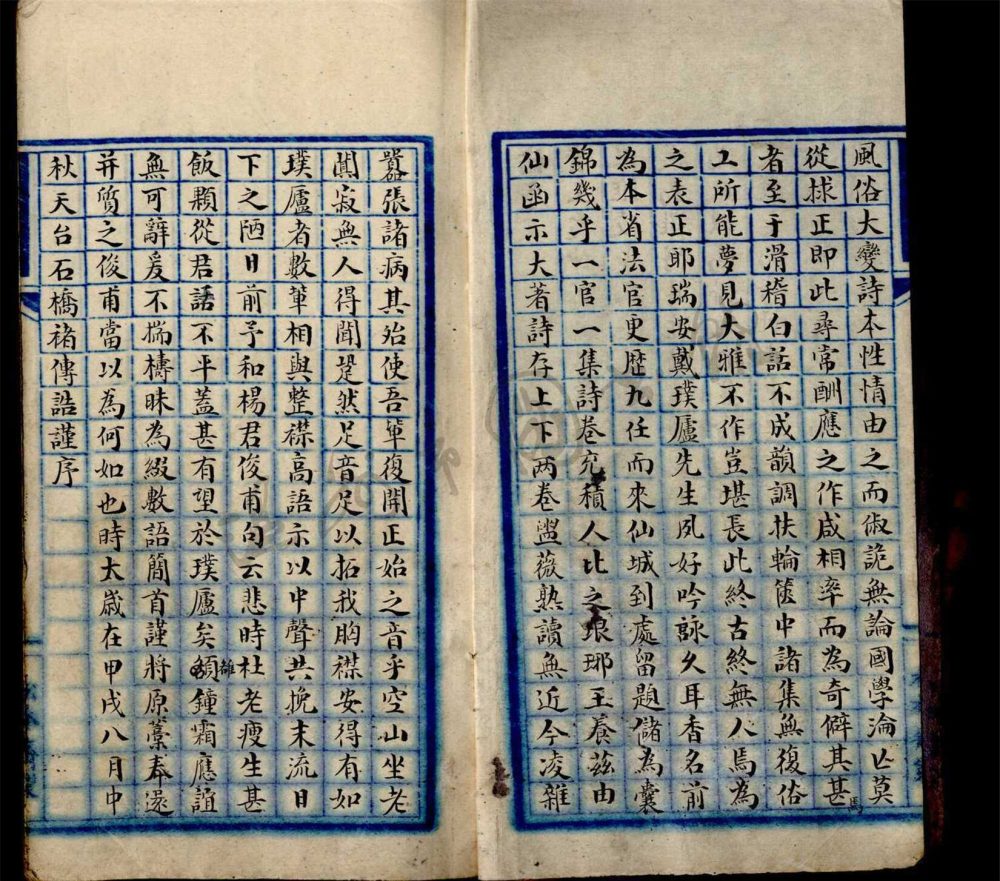 風俗大變詩本性情由之而俶詭無論國學淪亡莫
從捄正即此尋常酬應之作咸相率而為奇僻其甚焉
者至于滑稽白話不成韻調扶輪篋中諸集無復俗
工所能夢見大雅不作豈堪長此終古終無人焉為
之表正耶瑞安戴璞廬先生夙好吟詠久耳香名前
為本省法官更歷九任而來仙城到處留題儲為囊
錦幾乎一官一集詩卷充積人比之琅琊王養茲由
仙函示大著詩存上下两卷盥薇熟讀無近今凌雜
囂張諸病其殆使吾軰復開正始之音乎空山坐老
闃寂無人得聞跫然足音足以拓我胸襟安得有如
璞廬者數軰相與整襟高語示以中聲共挽末流日
下之陋日前予和楊君俊甫句云悲時杜老瘦生甚
飯顆從君話不平蓋甚有望於璞廬矣顧雖鐘霜應誼
無可辭爰不揣檮昧為綴數語簡首謹將原藁奉還
并質之俊甫當以為何如也時太歲在甲戌八月中
秋天台石橋褚傳誥謹序